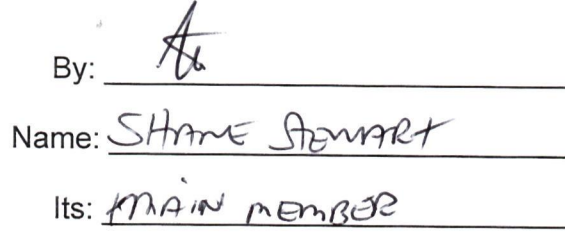 By:
Name: SHANE STEWART
Its: MAIN MEMBER